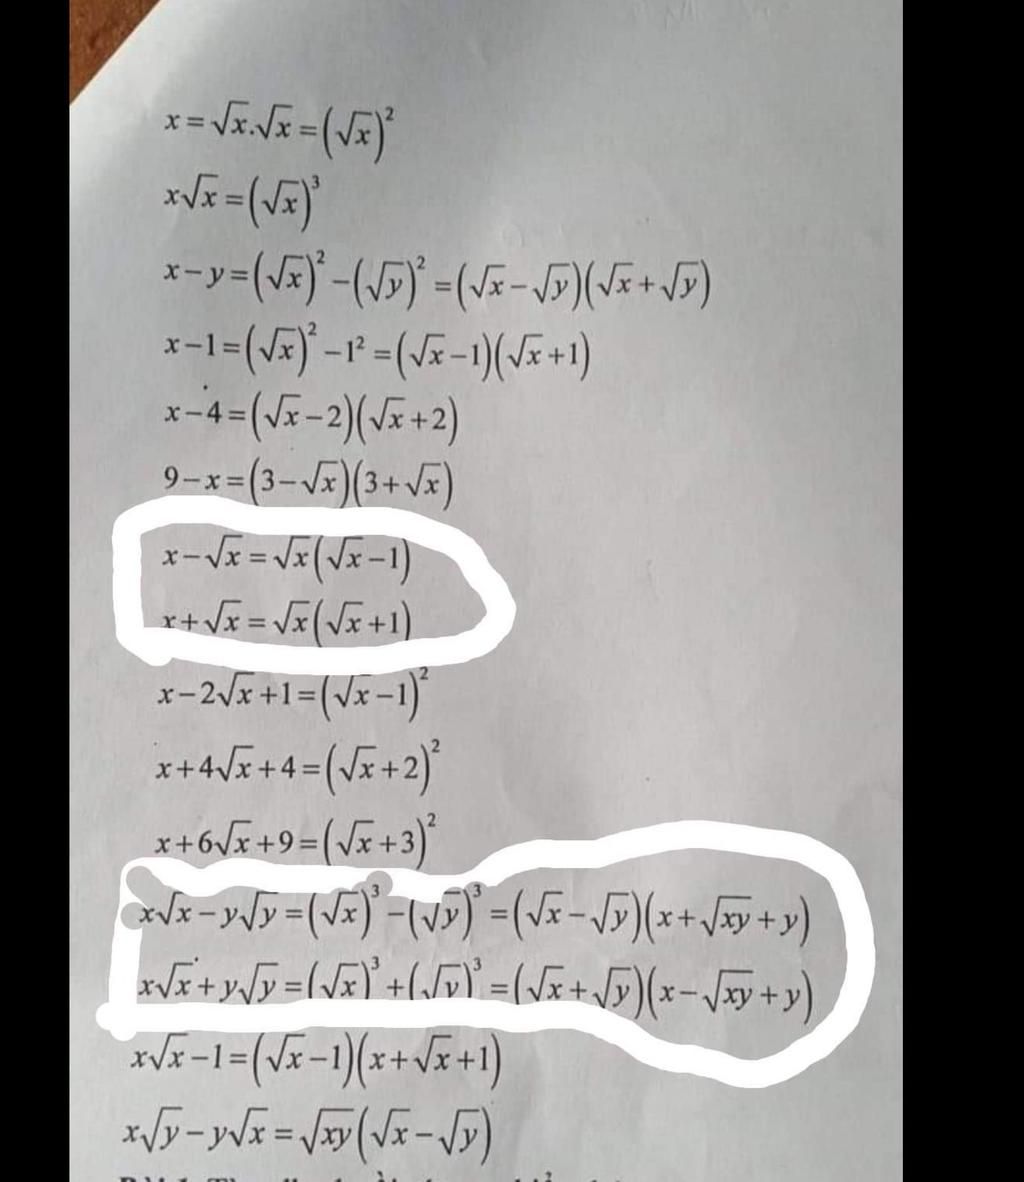 x = √x.√x = (√x)²
x√x = (√x)³
x − y = (√x)² − (√y)² = (√x − √y)(√x + √y)
x − 1 = (√x)² − 1² = (√x − 1)(√x + 1)
x − 4 = (√x − 2)(√x + 2)
9 − x = (3 − √x)(3 + √x)
x − √x = √x(√x − 1)
x + √x = √x(√x + 1)
x − 2√x + 1 = (√x − 1)²
x + 4√x + 4 = (√x + 2)²
x + 6√x + 9 = (√x + 3)²
x√x − y√y = (√x)³ − (√y)³ = (√x − √y)(x + √xy + y)
x√x + y√y = (√x)³ + (√y)³ = (√x + √y)(x − √xy + y)
x√x − 1 = (√x − 1)(x + √x + 1)
x√y − y√x = √xy(√x − √y)